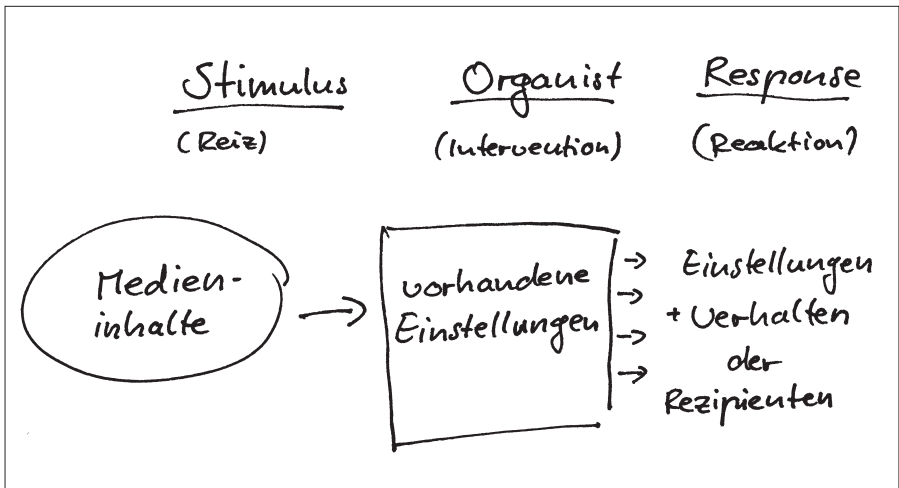 Stimulus
(Reiz)
Organist
(Intervention)
Response
(Reaktion)
Medien-
inhalte
vorhandene
Einstellungen
Einstellungen
+ Verhalten
der
Rezipienten